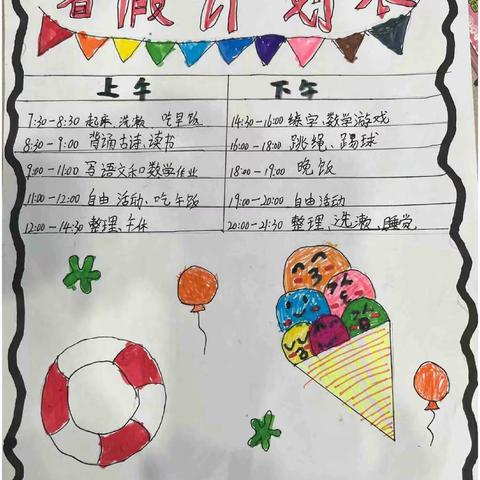 暑假计划表
上午 下午
7:30-8:30 起床、洗漱 吃早饭 14:30-16:00 练字、数学游戏
8:30-9:00 背诵古诗、读书 16:00-18:00 跳绳、踢球
9:00-11:00 写语文和数学作业 18:00-19:00 晚饭
11:00-12:00 自由活动、吃午饭 19:00-20:00 自由活动
12:00-14:30 整理、午休 20:00-21:30 整理、洗漱、睡觉